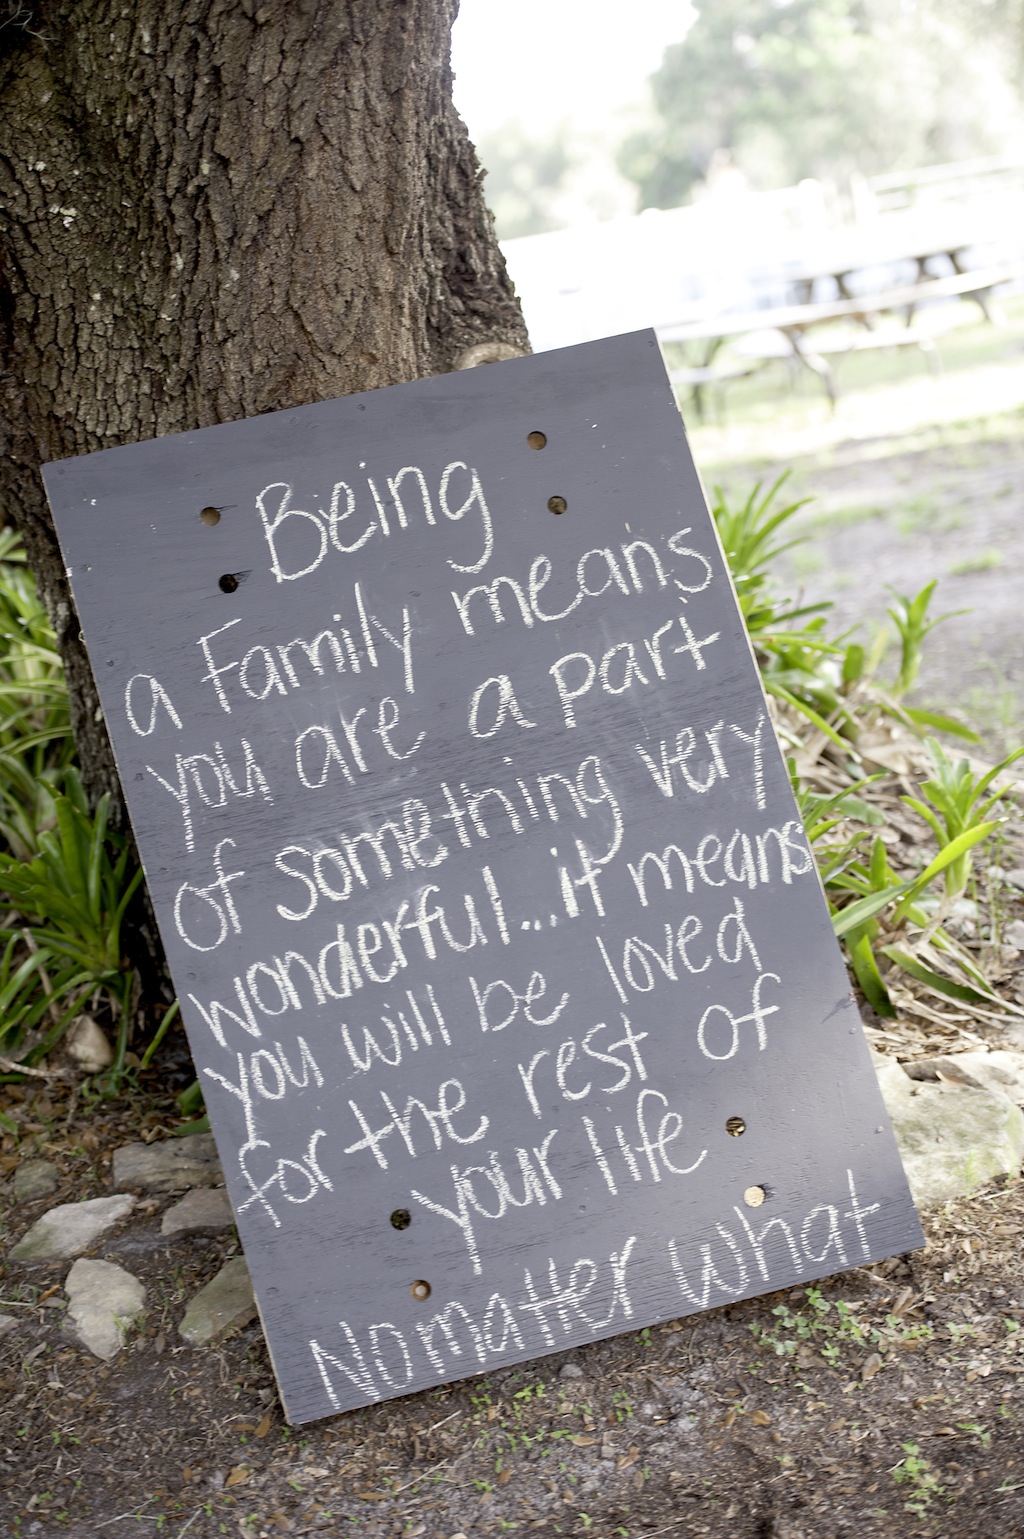 Being
a Family means
you are a part
of something very
wonderful...it means
you will be loved
for the rest of
your life
No matter what